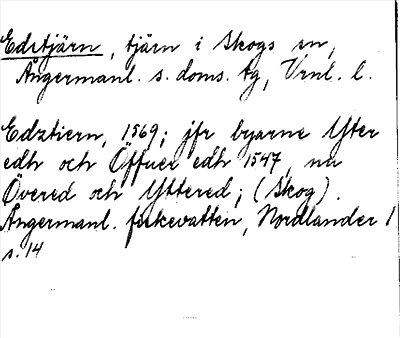 Edstjärn, tjärn i Skogs sn,
Ångermanl. s. doms. tg, Vrnl. l.
Edztiern, 1569; jfr byarne Ytter
edh och Öffuer edh 1547, nu
Övered och Yttered; (Skog).
Ångermanl. fiskevatten, Nordlander 1
s. 14